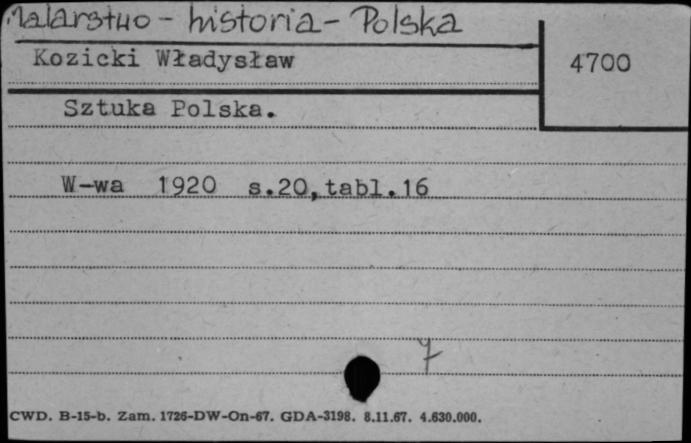 Malarstwo - historia - Polska
Kozicki Władysław
4700
Sztuka Polska.
W-wa 1920 s.20,tabl.16
7
CWD. B-15-b. Zam. 1726-DW-On-67. GDA-3198. 8.11.67. 4.630.000.